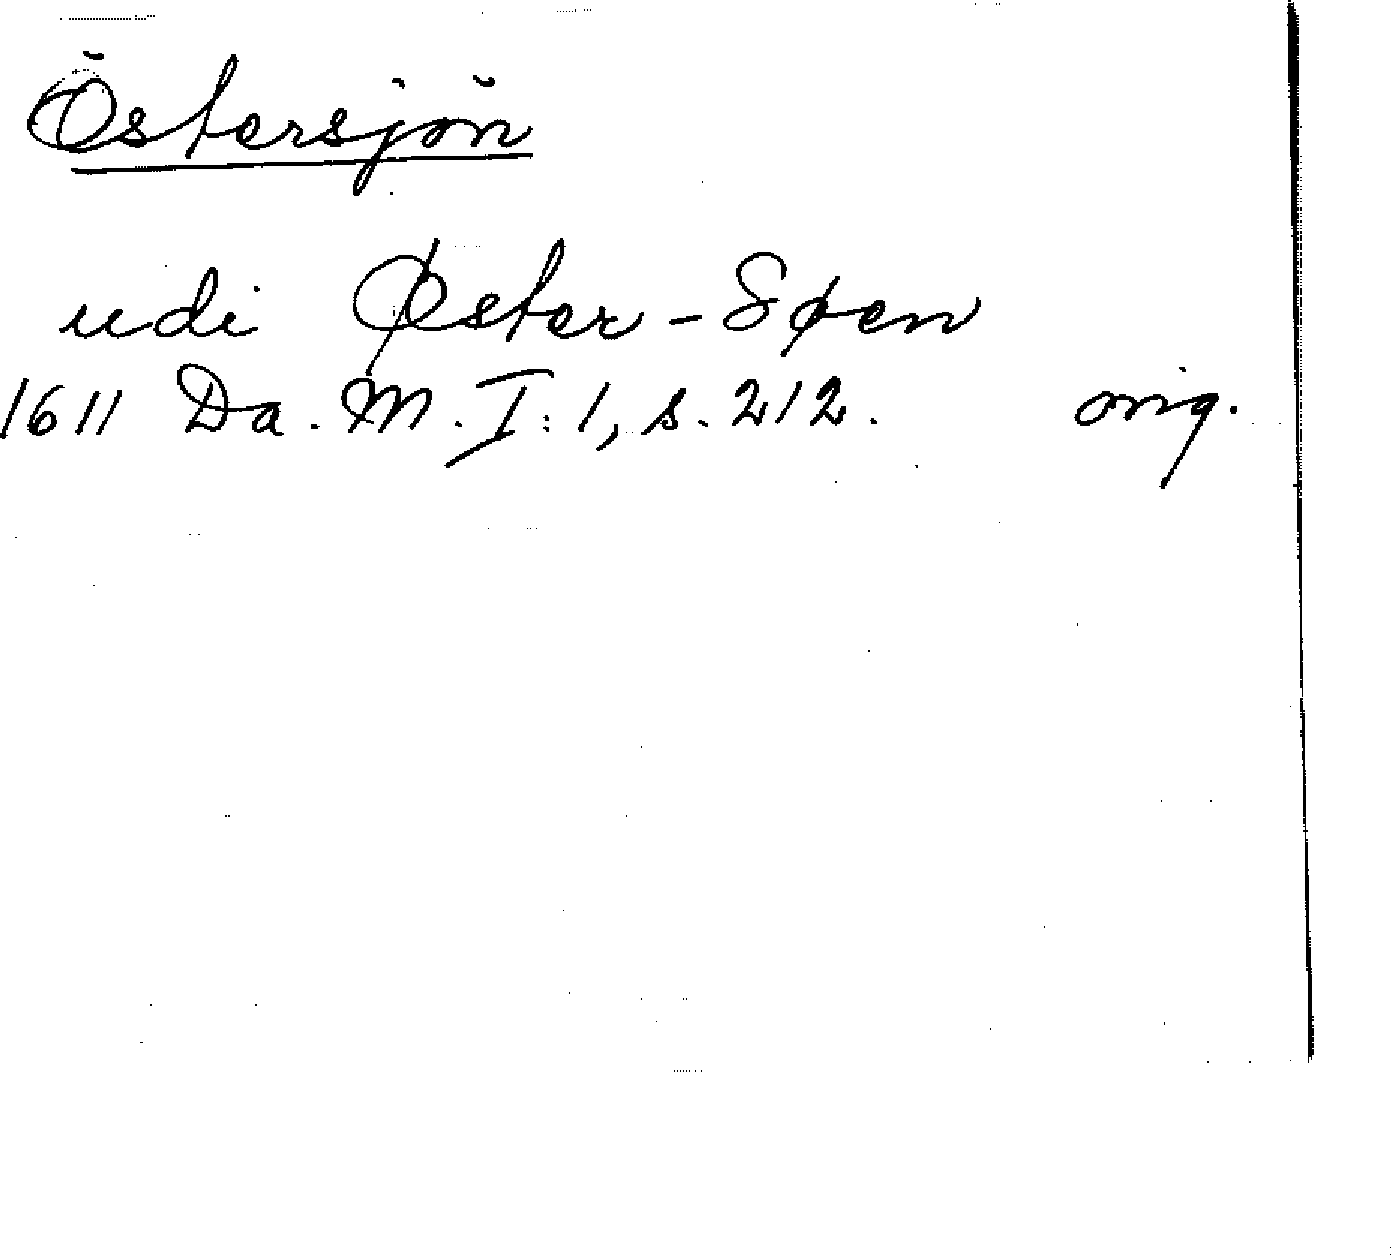 Östersjön
udi Øster-Søen
1611 Da. M. I:1, s. 212. orig.